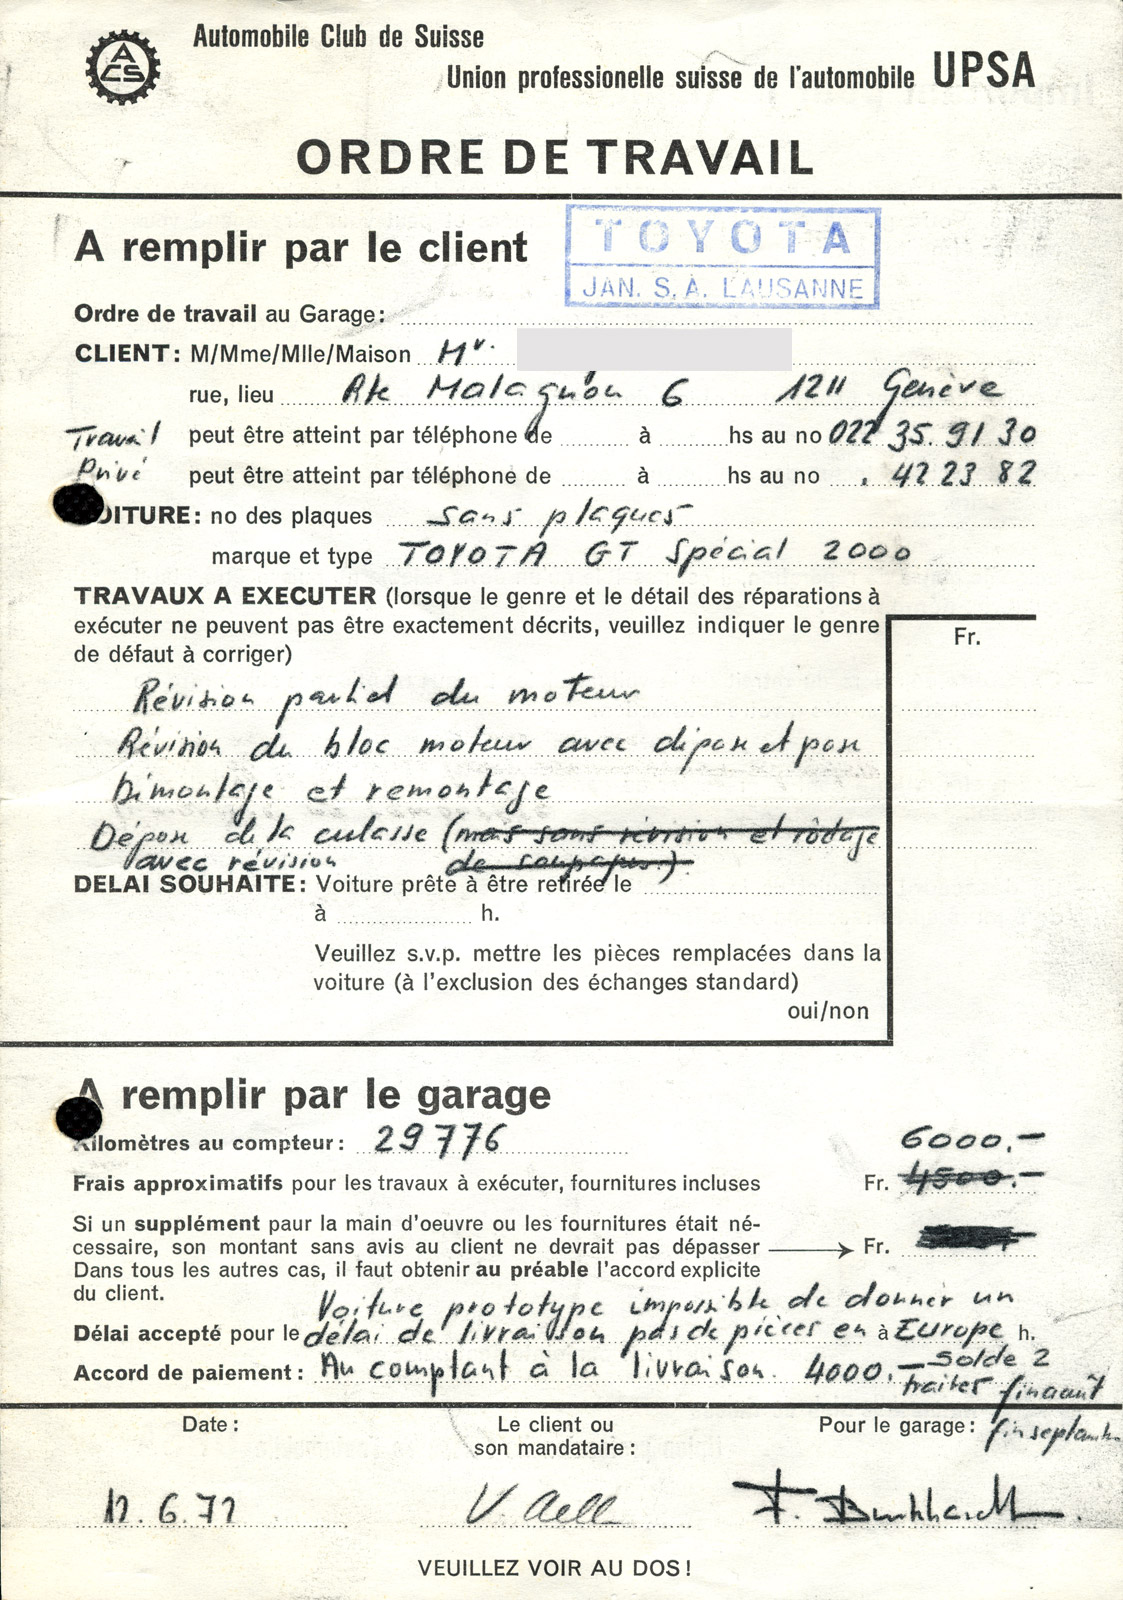 ACS
Automobile Club de Suisse
Union professionelle suisse de l'automobile UPSA
ORDRE DE TRAVAIL
A remplir par le client
TOYOTA
JAN. S.A. LAUSANNE
Ordre de travail au Garage:
CLIENT: M/Mme/Mlle/Maison Mr.
rue, lieu Rte Malagnou 6 1211 Genève
Travail peut être atteint par téléphone de à hs au no 022 35.91 30
Privé peut être atteint par téléphone de à hs au no . 42 23 82
OITURE: no des plaques sans plaques
marque et type TOYOTA GT Spécial 2000
TRAVAUX A EXECUTER (lorsque le genre et le détail des réparations à
exécuter ne peuvent pas être exactement décrits, veuillez indiquer le genre
de défaut à corriger)
Fr.
Révision partiel du moteur
Révision du bloc moteur avec dépose et pose
Démontage et remontage
Dépose de la culasse (mais sans révision et rodage
avec révision de soupapes.)
DELAI SOUHAITE: Voiture prête à être retirée le
à h.
Veuillez s.v.p. mettre les pièces remplacées dans la
voiture (à l'exclusion des échanges standard)
oui/non
A remplir par le garage
Kilomètres au compteur: 29776
6000.—
Frais approximatifs pour les travaux à exécuter, fournitures incluses Fr. 4500.—
Si un supplément paur la main d'oeuvre ou les fournitures était né-
cessaire, son montant sans avis au client ne devrait pas dépasser → Fr.
Dans tous les autres cas, il faut obtenir au préable l'accord explicite
du client.
Voiture prototype impossible de donner un
Délai accepté pour le délai de livraison pas de pièces en à Europe h.
Accord de paiement: Au comptant à la livraison. 4000.— Solde 2
traites fin août
fin septembre
Date:
Le client ou
son mandataire:
Pour le garage:
12.6.72
F. Burkhardt
VEUILLEZ VOIR AU DOS!